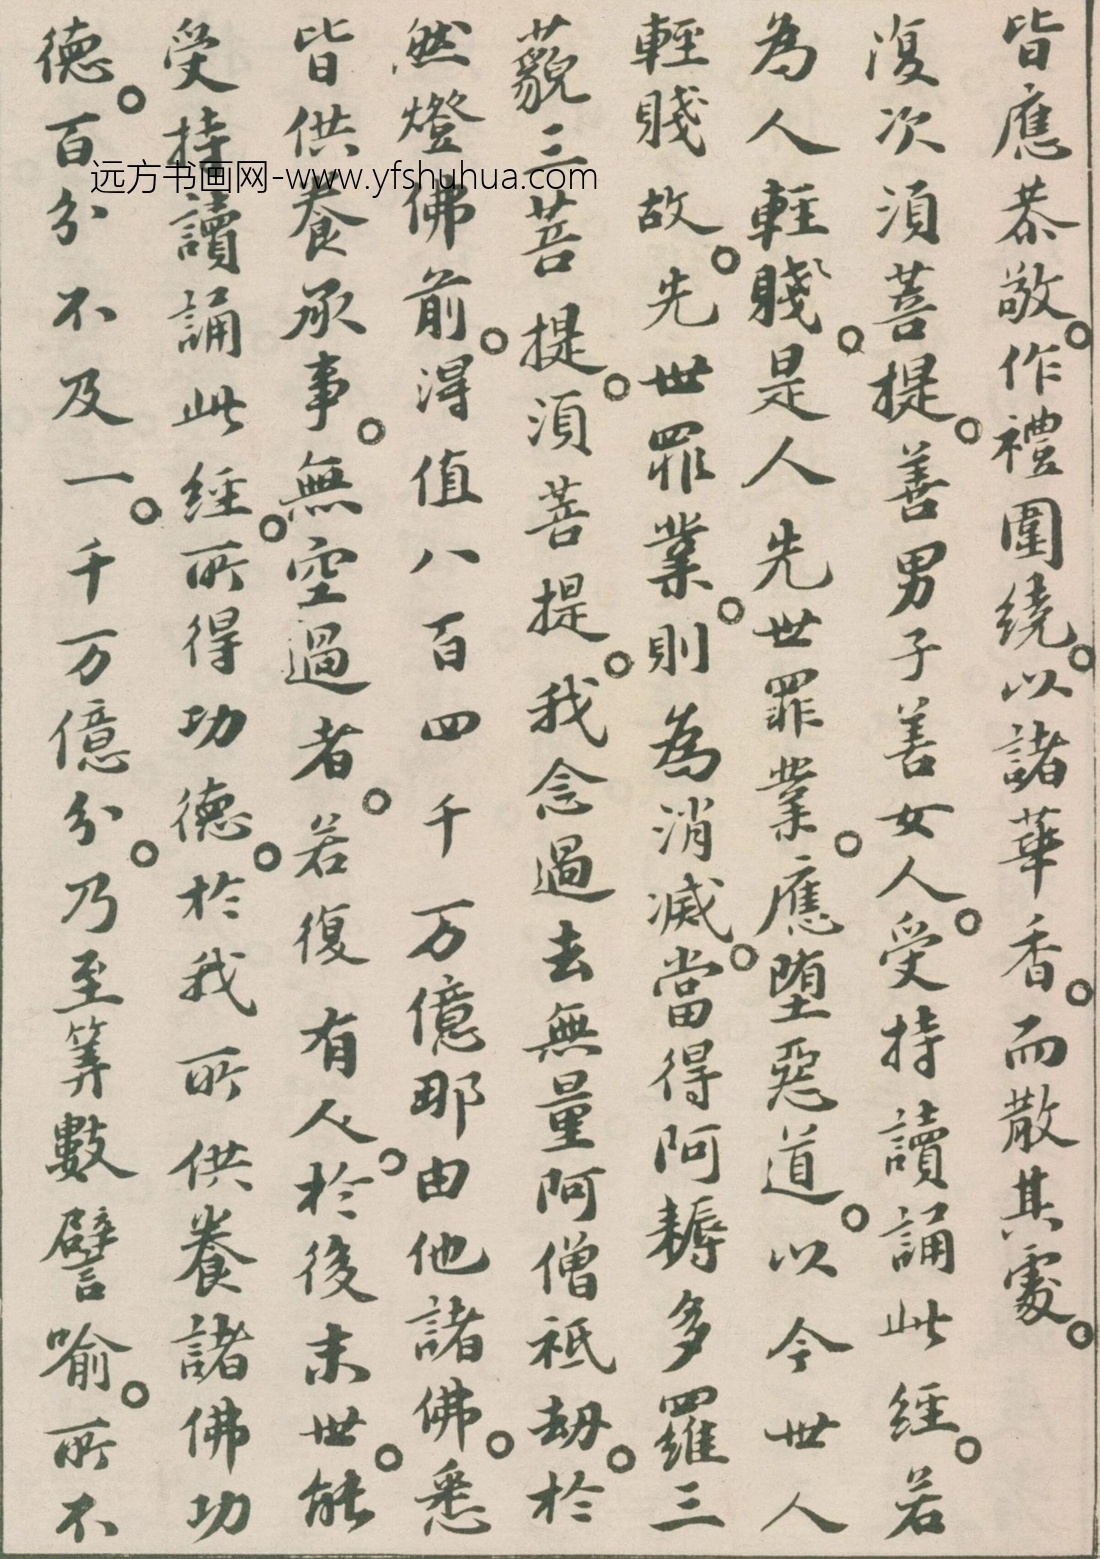 皆應恭敬。作禮圍繞。以諸華香。而散其處。
復次須菩提。善男子善女人。受持讀誦此經。若
為人輕賤。是人先世罪業。應堕惡道。以今世人
輕賤故。先世罪業。則為消滅。當得阿耨多羅三
藐三菩提。須菩提。我念過去無量阿僧祇劫。於
然燈佛前。得值八百四千万億那由他諸佛。悉
皆供養承事。無空過者。若復有人。於後末世。能
受持讀誦此經。所得功德。於我所供養諸佛功
德。百分不及一。千万億分。乃至筭數譬喻。所不
远方书画网-www.yfshuhua.com